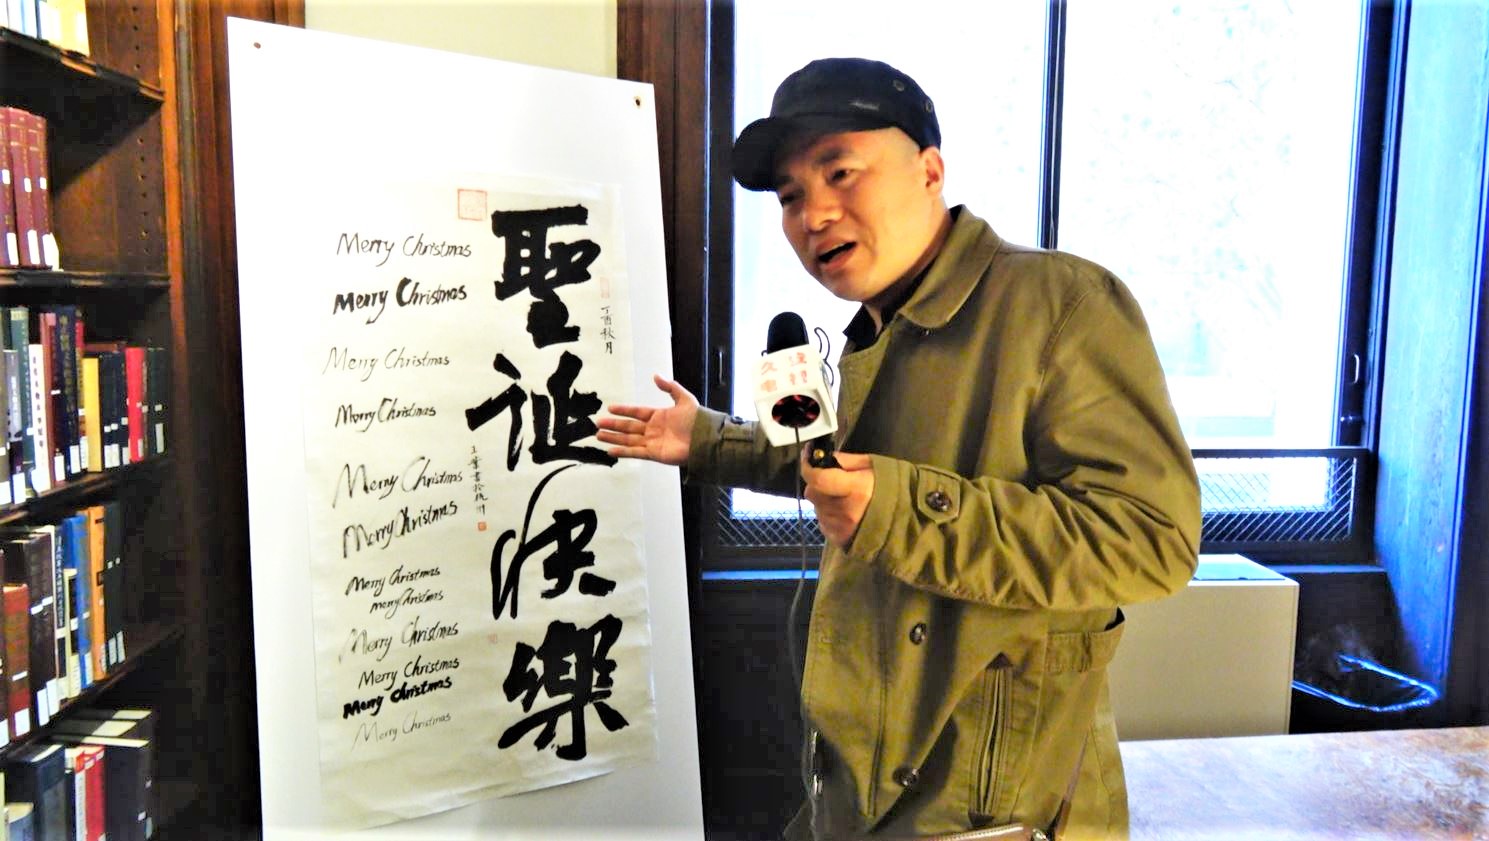 丁酉秋月
聖誕快樂
書於杭州
Merry Christmas
Merry Christmas
Merry Christmas
Merry Christmas
Merry Christmas
Merry Christmas
Merry Christmas
merry Christmas
Merry Christmas
Merry Christmas
Merry Christmas
Merry Christmas